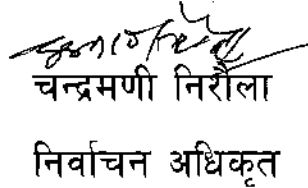 चन्द्रमणी निरौला
निर्वाचन अधिकृत